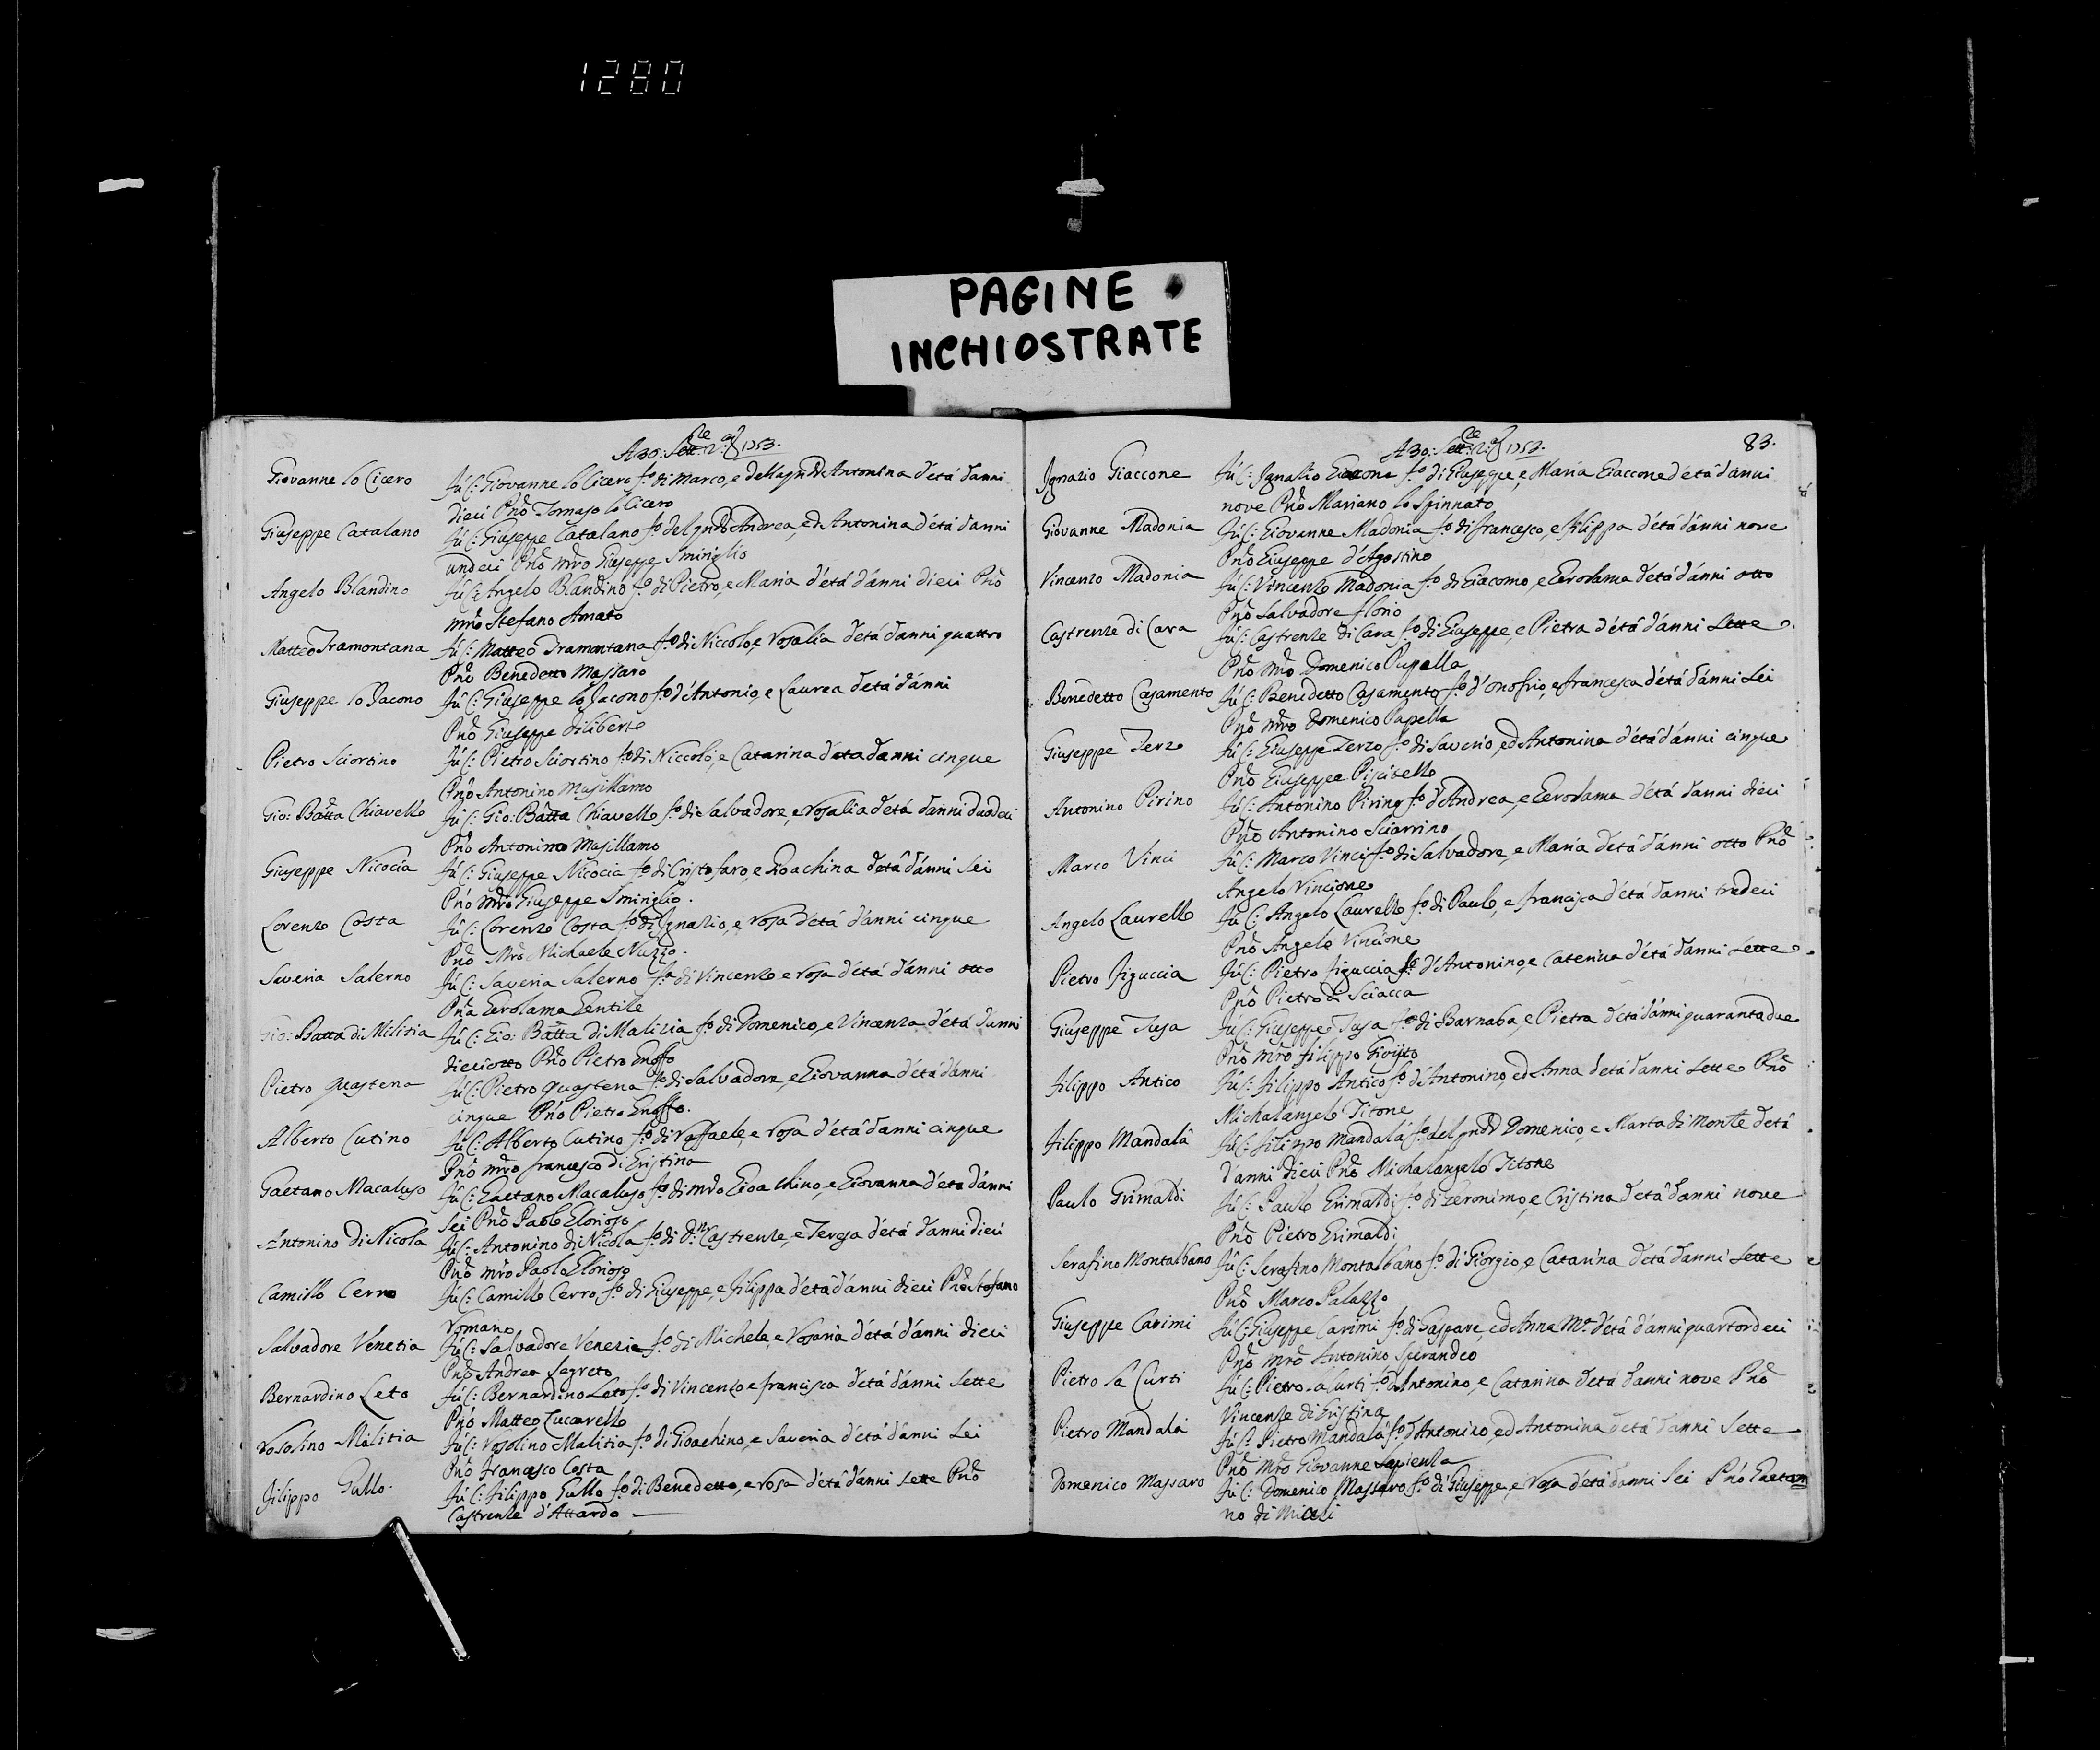 1280
PAGINE
INCHIOSTRATE
A 30: Sett:re 2a Ind 1753.
Giovanne lo Cicero Fù C: Giovanne lo Cicero fo: di Marco, e della qnd Antonina d'età d'anni
dieci Pno Tomaso lo Cicero
Giuseppe Catalano Fù C: Giuseppe Catalano fo: del qnd Andrea, ed Antonina d'età d'anni
undeci Pno mro Giuseppe Smiriglio
Angelo Blandino Fù C: Angelo Blandino fo: di Pietro, e Maria d'età d'anni dieci Pno
mro Stefano Amato
Matteo Tramontana Fù C: Matteo Tramontana fo: di Niccolo, e Rosalia d'età d'anni quattro
Pno Benedetto Massaro
Giuseppe lo Jacono Fù C: Giuseppe lo Jacono fo: d'Antonio, e Laurea d'età d'anni
Pno Giuseppe Diliberto
Pietro Sciortino Fù C: Pietro Sciortino fo: di Niccolò, e Catarina d'età d'anni cinque
Pno Antonino Musillamo
Gio: Batta Chiavello Fù C: Gio: Batta Chiavello fo: di Salvadore, e Rosalia d'età d'anni duodeci
Pno Antonino Musillamo
Giuseppe Nicocia Fù C: Giuseppe Nicocia fo: di Cristofaro, e Gioachina d'età d'anni sei
Pno mro Giuseppe Smiriglio.
Lorenzo Costa Fù C: Lorenzo Costa fo: di Ignazio, e Rosa d'età d'anni cinque
Pno Mro Michaele Nuzzo.
Saveria Salerno Fù C: Saveria Salerno fa: di Vincenzo e Rosa d'età d'anni otto
Pna Gerolama Gentile
Gio: Batta di Militia Fù C: Gio: Batta di Malizia fo: di Domenico, e Vincenza d'età d'anni
dieciotto Pno Pietro Enoffo
Pietro Quastena Fù C: Pietro Quastena fo: di Salvadore, e Giovanna d'età d'anni
cinque Pno Pietro Enoffo.
Alberto Cutino Fù C: Alberto Cutino fo: di Raffaele, e Rosa d'età d'anni cinque
Pno mro Francesco di Cristina
Gaetano Macaluso Fù C: Gaetano Macaluso fo: di mro Gioachino, e Giovanna d'età d'anni
sei Pno Paolo Glorioso
Antonino di Nicola Fù C: Antonino di Nicola fo: di Dn Castrenze, e Teresa d'età d'anni dieci
Pno mro Paolo Glorioso
Camillo Cerro Fù C: Camillo Cerro fo: di Giuseppe, e Filippa d'età d'anni dieci Pno Stefano
Romano
Salvadore Venetia Fù C: Salvadore Venezia fo: di Michele, e Rosaria d'età d'anni dieci
Pno Andrea Segreto
Bernardino Leto Fù C: Bernardino Leto fo: di Vincenzo e Francisca d'età d'anni sette
Pno Matteo Zuccarello
Rosolino Militia Fù C: Rosolino Malitia fo: di Gioachino, e Saveria d'età d'anni sei
Pno Francesco Costa
Filippo Gallo. Fù C: Filippo Gallo fo: di Benedetto, e Rosa d'età d'anni sette Pno
Castrenze d'Attardo
A 30: Sett:re 2a Ind 1753. 83.
Ignazio Giaccone Fù C: Ignazio Giaccone fo: di Giuseppe, e Maria Giaccone d'età d'anni
nove Pno Mariano lo Spinnato
Giovanne Madonia Fù C: Giovanne Madonia fo: di Francesco, e Filippa d'età d'anni nove
Pno Giuseppe d'Agostino
Vincenzo Madonia Fù C: Vincenzo Madonia fo: di Giacomo, e Gerolama d'età d'anni otto
Pno Salvadore Florio
Castrenze di Cara Fù C: Castrenze di Cara fo: di Giuseppe, e Pietra d'età d'anni sette
Pno Mro Domenico Pupella
Benedetto Casamento Fù C: Benedetto Casamento fo: d'Onofrio, e Francesca d'età d'anni sei
Pno mro Domenico Papella
Giuseppe Terzo Fù C: Giuseppe Terzo fo: di Saverio, ed Antonina d'età d'anni cinque
Pno Giuseppe Piscitello
Antonino Pirino Fù C: Antonino Pirino fo: d'Andrea, e Gerolama d'età d'anni dieci
Pno Antonino Sciarrino
Marco Vinci Fù C: Marco Vinci fo: di Salvadore, e Maria d'età d'anni otto Pno
Angelo Vincione
Angelo Laurello Fù C: Angelo Laurello fo: di Paulo, e Francisca d'età d'anni tredeci
Pno Angelo Vincione
Pietro Figuccia Fù C: Pietro Figuccia fo: d'Antonino, e Caterina d'età d'anni sette
Pno Pietro di Sciacca
Giuseppe Tusa Fù C: Giuseppe Tusa fo: di Barnaba, e Pietra d'età d'anni quarantadue
Pno mro Filippo
Filippo Antico Fù C: Filippo Antico fo: d'Antonino, ed Anna d'età d'anni sette Pno
Michalangelo Titone
Filippo Mandalà Fù C: Filippo Mandalà fo: del qnd Domenico, e Marta di Monte d'età
d'anni dieci Pno Michalangelo Titone
Paulo Grimaldi Fù C: Paulo Grimaldi fo: di Geronimo, e Cristina d'età d'anni nove
Pno Pietro Grimaldi
Serafino Montalbano Fù C: Serafino Montalbano fo: di Giorgio, e Catarina d'età d'anni sette
Pno Marco Palazzo
Giuseppe Carimi Fù C: Giuseppe Carimi fo: di Gaspare, ed Anna Ma: d'età d'anni quartordeci
Pno mro Antonino Sperandeo
Pietro la Curti Fù C: Pietro la Curti fo: d'Antonino, e Catarina d'età d'anni nove Pno
Vincenzo di Cristina
Pietro Mandalà Fù C: Pietro Mandalà fo: d'Antonino, ed Antonina d'età d'anni sette
Pno Mro Giovanne Sapienza
Domenico Massaro Fù C: Domenico Massaro fo: di Giuseppe, e Rosa d'età d'anni sei Pno Gaetan
no di Miceli